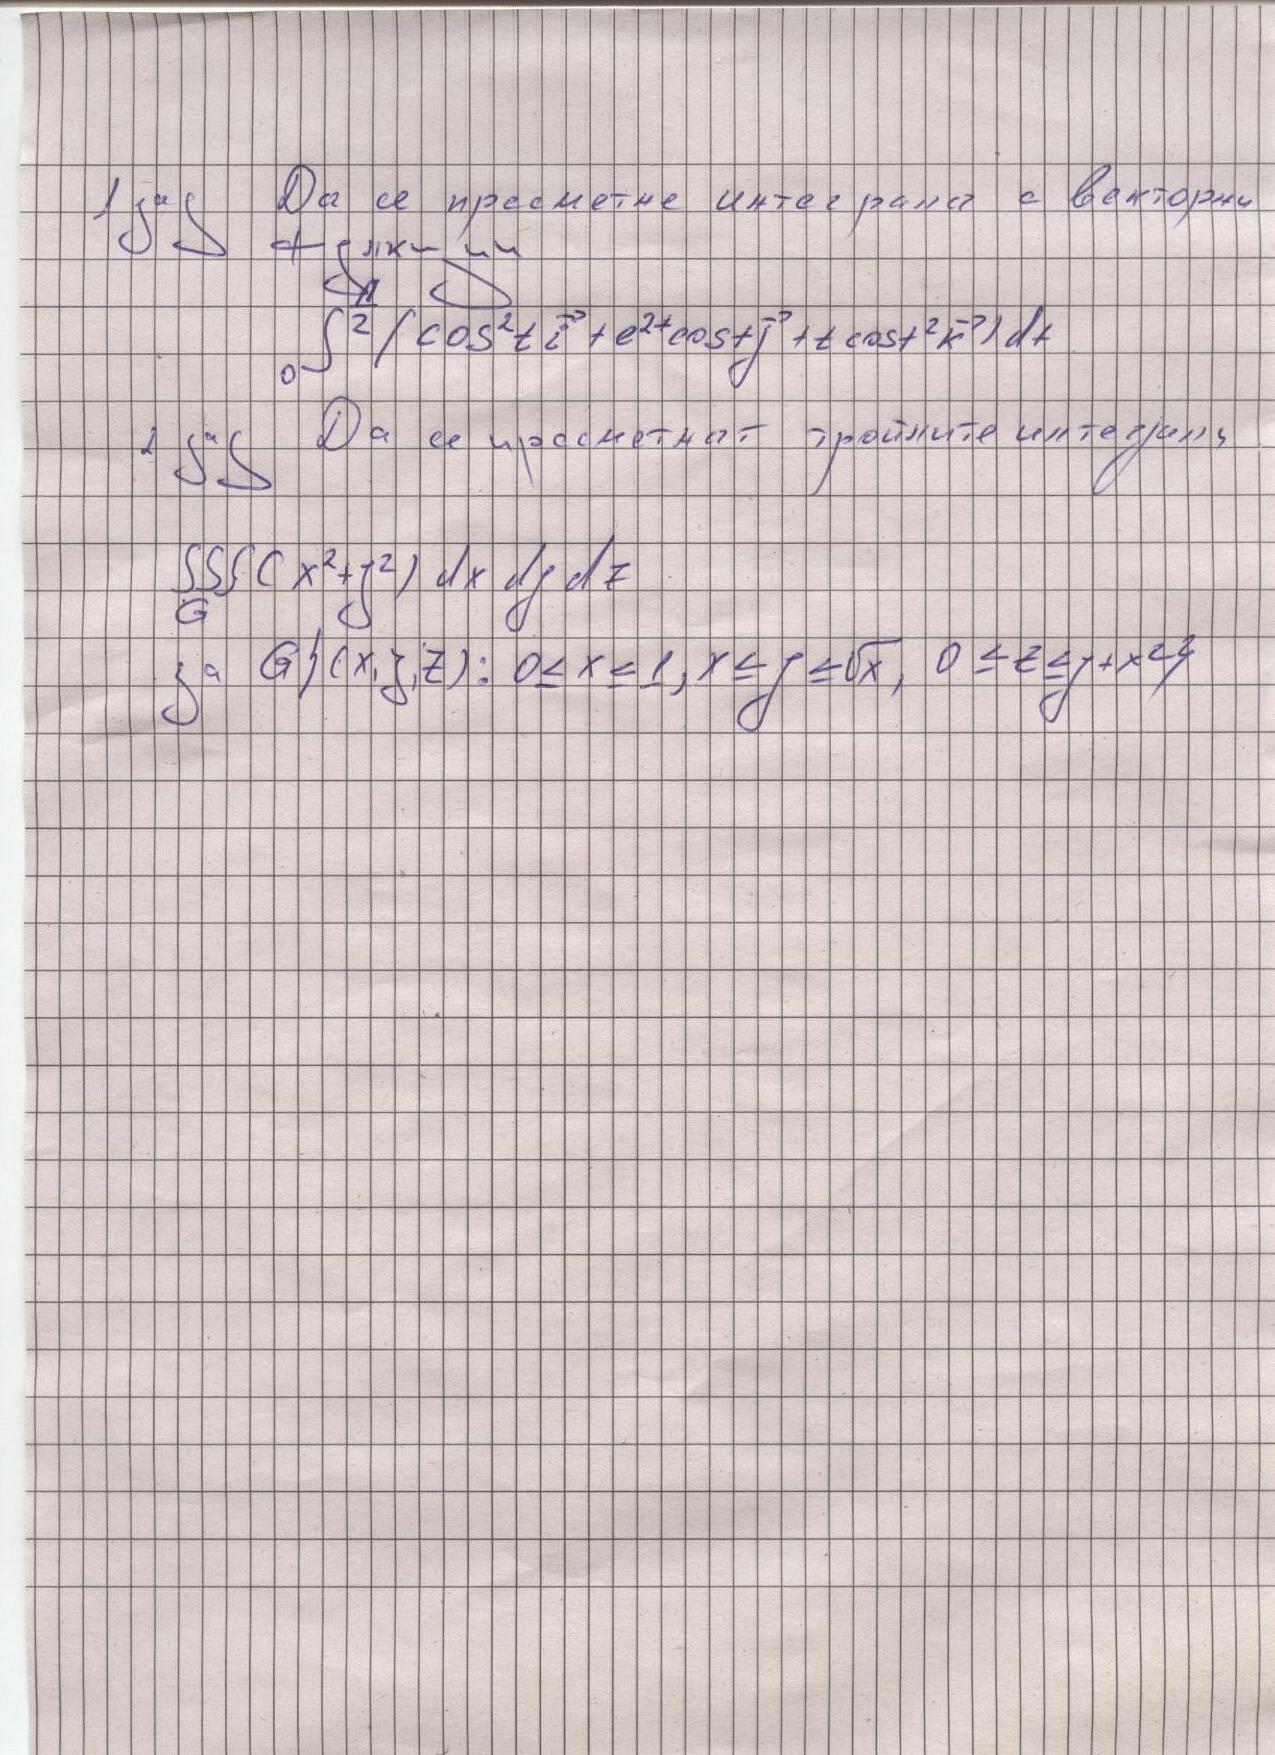 1 зад Да се пресметне интеграла с векторни
функции
∫₀^(π/2) (cos²t i⃗ + e²ᵗcost j⃗ + t cost² k⃗) dt
2 зад Да се пресметнат тройните интеграли
∫∫∫ (x²+y²) dx dy dz
G
за G{(x,y,z): 0≤x≤1, x≤y≤√x, 0≤z≤y+x²}